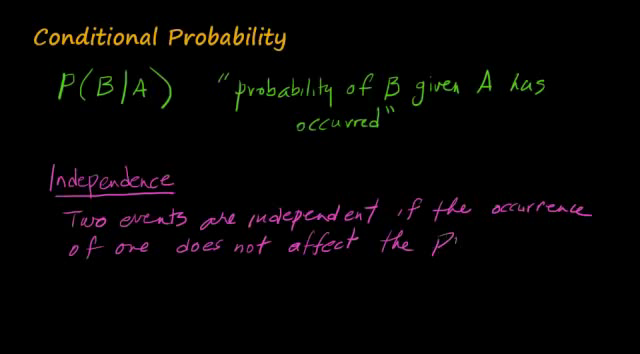 Conditional Probability
P(B/A) "probability of B given A has
occurred"
Independence
Two events are independent if the occurrence
of one does not affect the p